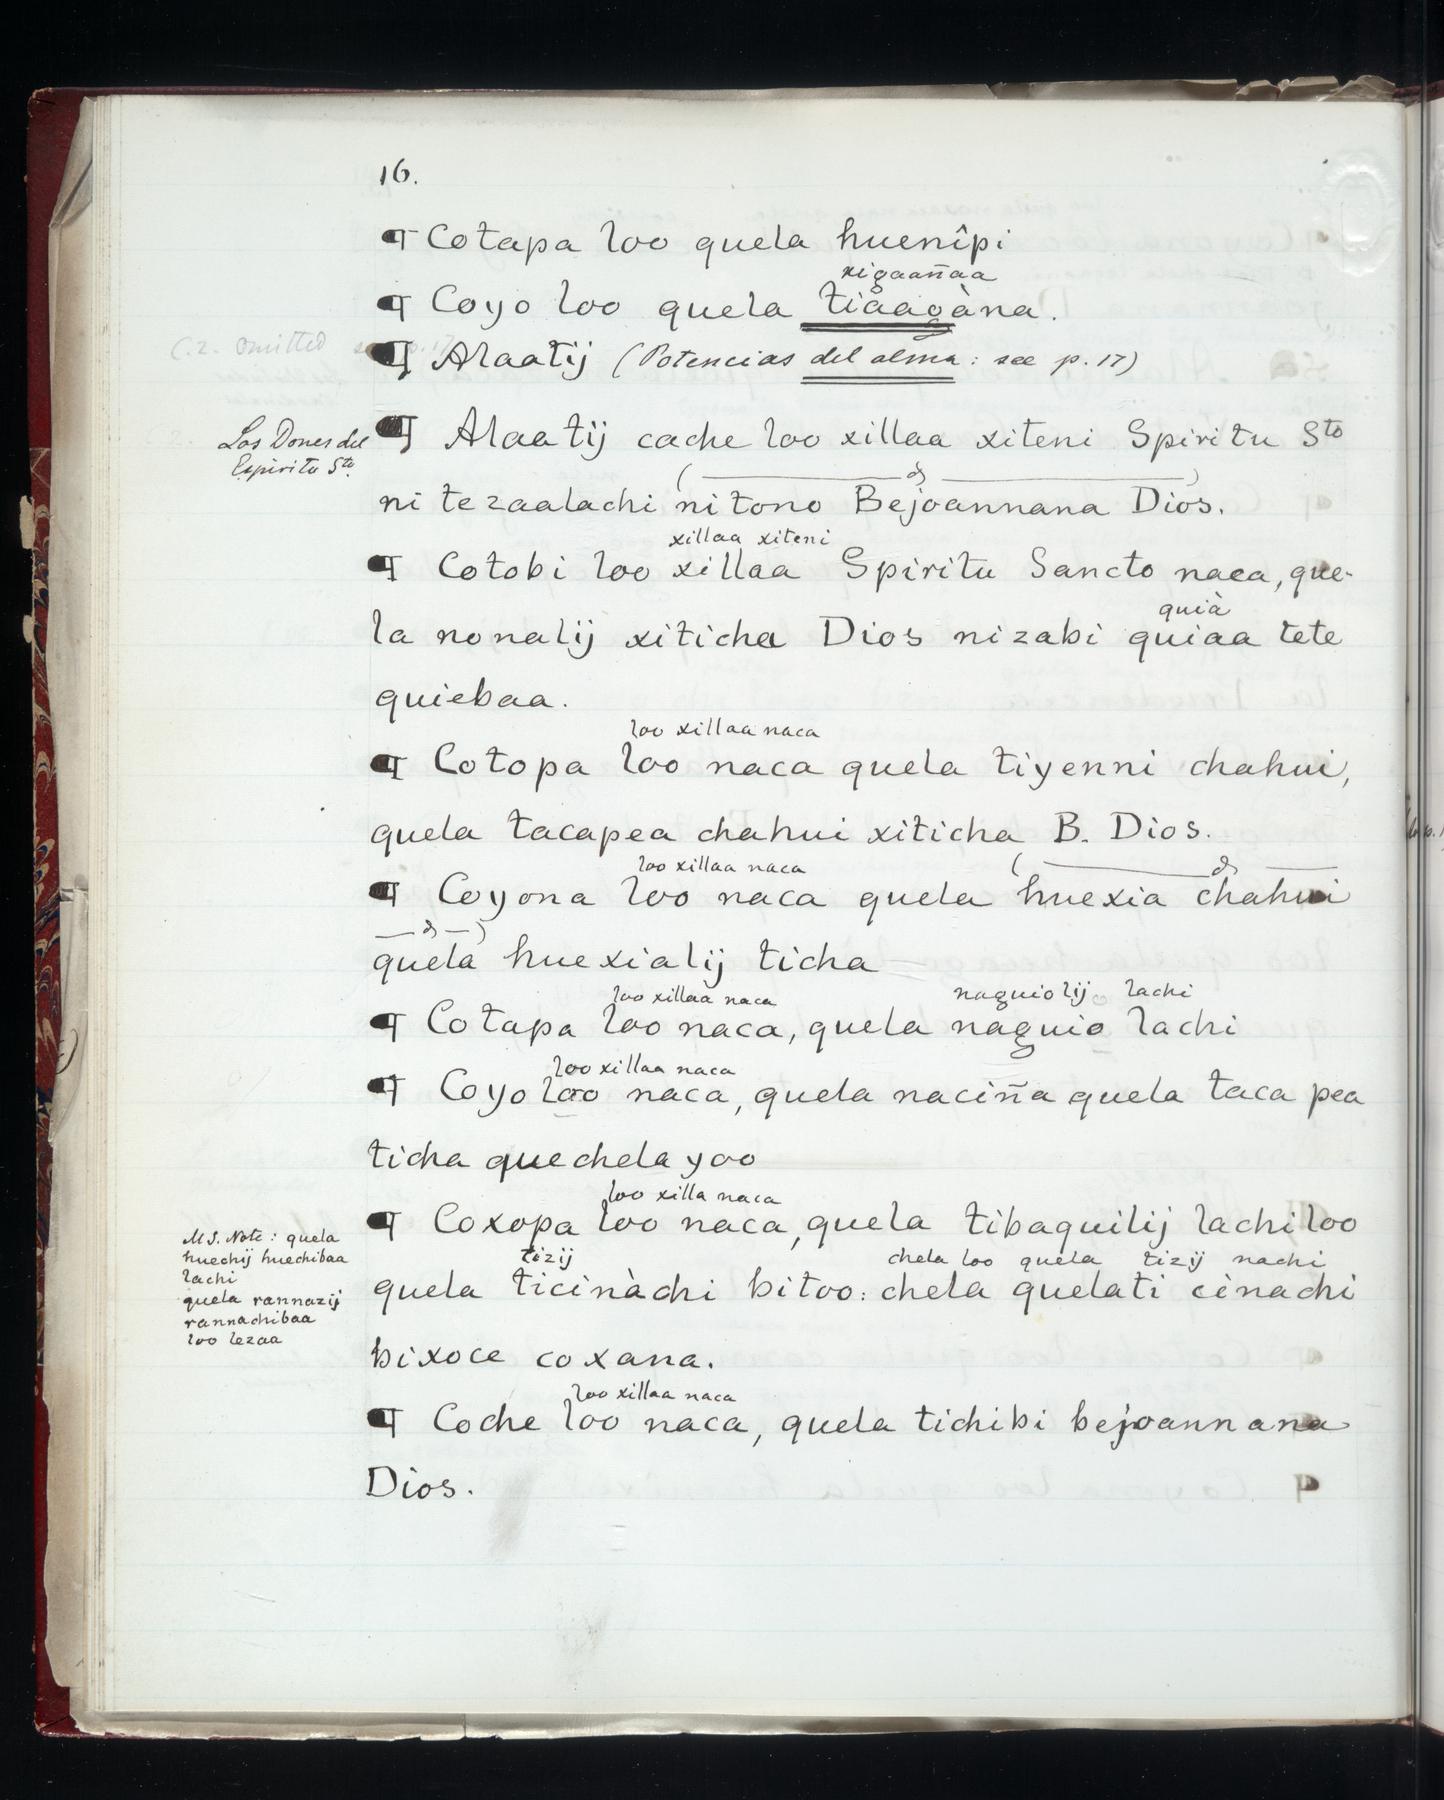 16.
¶ Cotapa loo quela huenîpi
xigaañaa
¶ Coyo loo quela tiaagàna.
C.2. omitted see p. 17
¶ Alaatij (Potencias del alma: see p. 17)
Los Dones del
Espiritu Sto.
¶ Alaatij cache loo xillaa xiteni Spiritu Sto
ni tezaalachi nitono Bejoannana Dios.
xillaa xiteni
¶ Cotobi loo xillaa Spiritu Sancto naca, que-
quià
la nonalij xiticha Dios nizabi quiaa tete
quiebaa.
loo xillaa naca
¶ Cotopa loo naca quela tiyenni chahui,
quela tacapea chahui xiticha B. Dios.
loo xillaa naca
¶ Coyona loo naca quela huexia chahui
quela huexialij ticha
loo xillaa naca naguiolij lachi
¶ Cotapa loo naca, quela naguio lachi
loo xillaa naca
¶ Coyo loo naca, quela naciña quela taca pea
ticha quechela yoo
loo xilla naca
¶ Coxopa loo naca, quela tibaquilij lachi loo
tizij chela loo quela tizij nachi
quela ticinàchi bitoo: chela quelati cinachi
bixoce coxana.
MS. Note: quela
huechij huechibaa
lachi
quela rannazij
rannachibaa
loo lezaa
loo xillaa naca
¶ Coche loo naca, quela tichibi bejoannana
Dios.